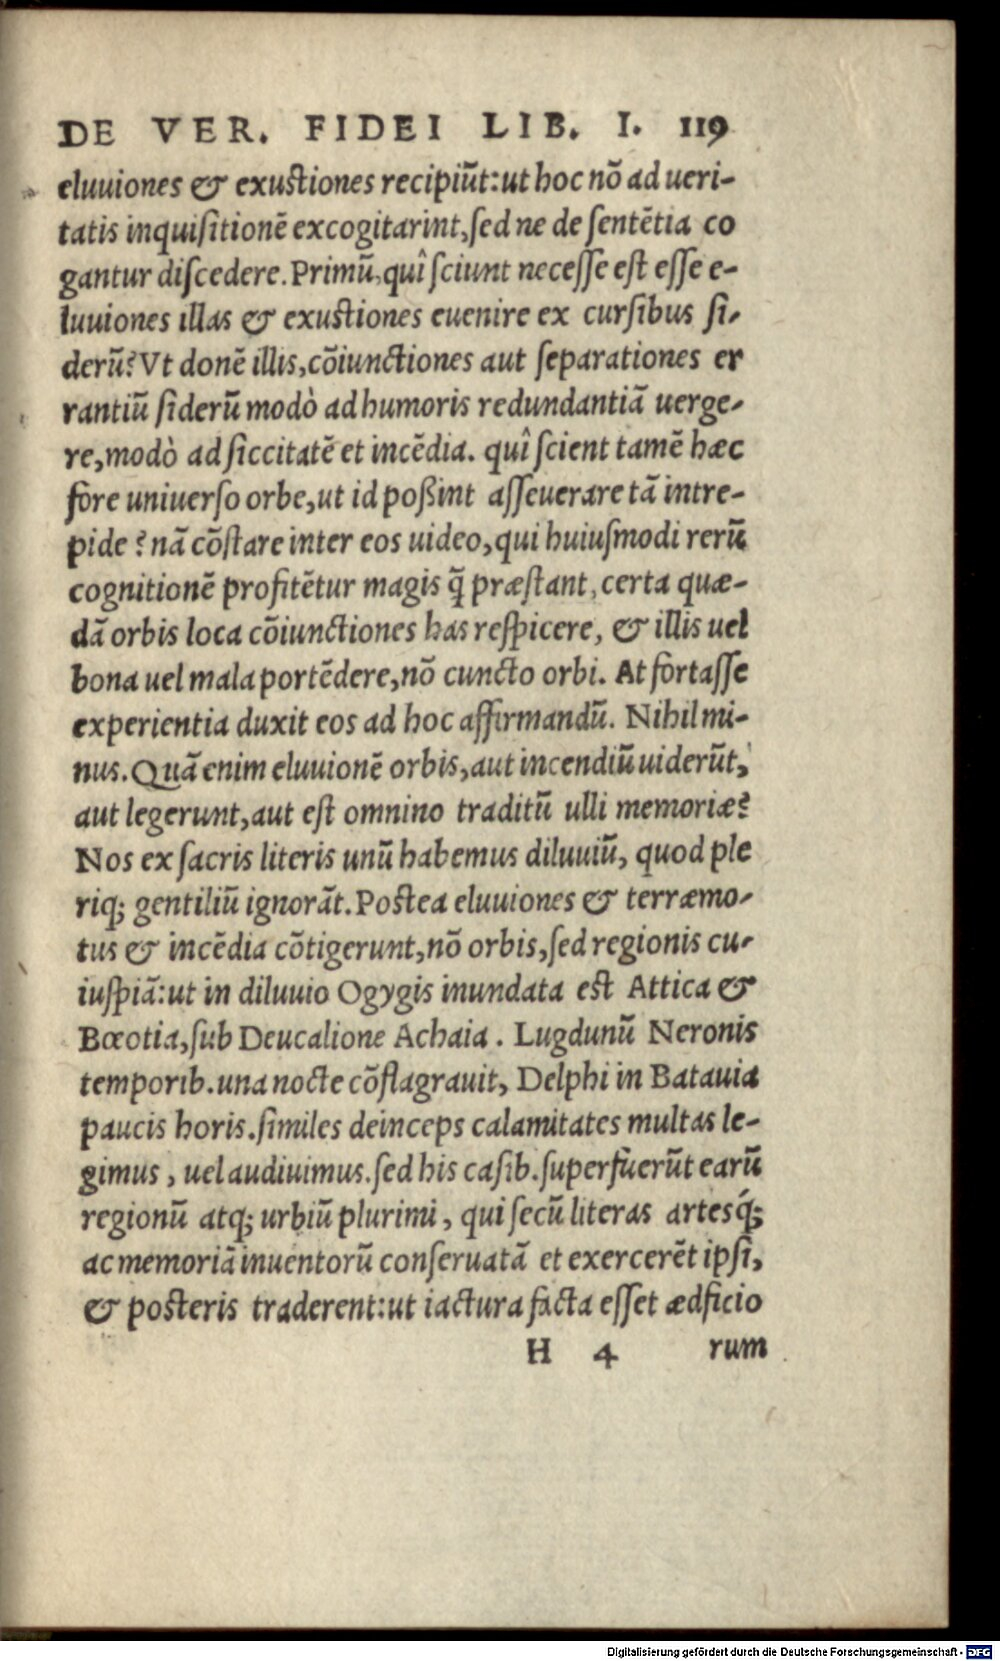 DE VER. FIDEI LIB. I. 119
eluuiones & exustiones recipiũt:ut hoc nõ ad ueri-
tatis inquisitionẽ excogitarint,sed ne de sentẽtia co
gantur discedere.Primũ,quî sciunt necesse est esse e-
luuiones illas & exustiones euenire ex cursibus si-
derũ?Vt donẽ illis,cõiunctiones aut separationes er
rantiũ siderũ modò ad humoris redundantiã uerge-
re,modò ad siccitatẽ et incẽdia. quî scient tamẽ hæc
fore uniuerso orbe,ut id poßint asseuerare tã intre-
pide ? nã cõstare inter eos uideo,qui huiusmodi rerũ
cognitionẽ profitẽtur magis q̃ præstant, certa quæ-
dã orbis loca cõiunctiones has respicere, & illis uel
bona uel mala portẽdere,nõ cuncto orbi. At fortasse
experientia duxit eos ad hoc affirmandũ. Nihil mi-
nus.Quã enim eluuionẽ orbis,aut incendiũ uiderũt,
aut legerunt,aut est omnino traditũ ulli memoriæ?
Nos ex sacris literis unũ habemus diluuiũ, quod ple
riq; gentiliũ ignorãt.Postea eluuiones & terræmo-
tus & incẽdia cõtigerunt,nõ orbis,sed regionis cu-
iuspiã:ut in diluuio Ogygis inundata est Attica &
Bœotia,sub Deucalione Achaia . Lugdunũ Neronis
temporib.una nocte cõflagrauit, Delphi in Batauia
paucis horis.similes deinceps calamitates multas le-
gimus , uel audiuimus.sed his casib.superfuerũt earũ
regionũ atq; urbiũ plurimi , qui secũ literas artesq́;
ac memoriã inuentorũ conseruatã et exercerẽt ipsi,
& posteris traderent:ut iactura facta esset ædficio
H 4 rum
Digitalisierung gefördert durch die Deutsche Forschungsgemeinschaft - DFG